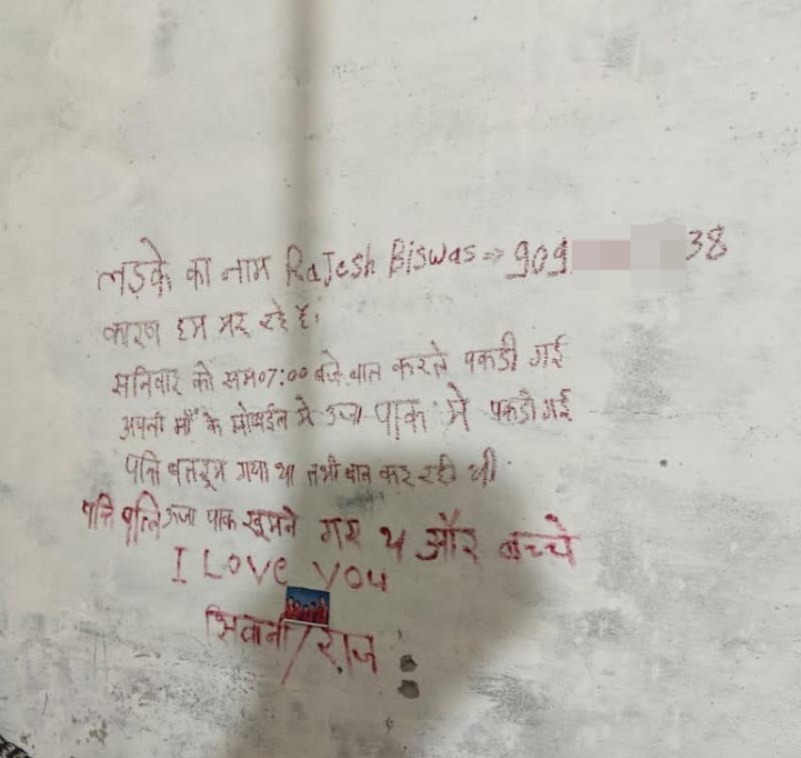 लड़के का नाम RaJesh Biswas => 909 38
कारण हम मर रहे है।
सनिवार को सम07:00 बजे बात करते पकडी गई
अपनी माँ के मोबाईल से उजा पाक में पकडी गई
पति बतरूम गया था तभी बात कर रही थी
पति पत्नि उजा पाक घूमने गए थ और बच्चे
I LOVE YOU
शिवानी/राज